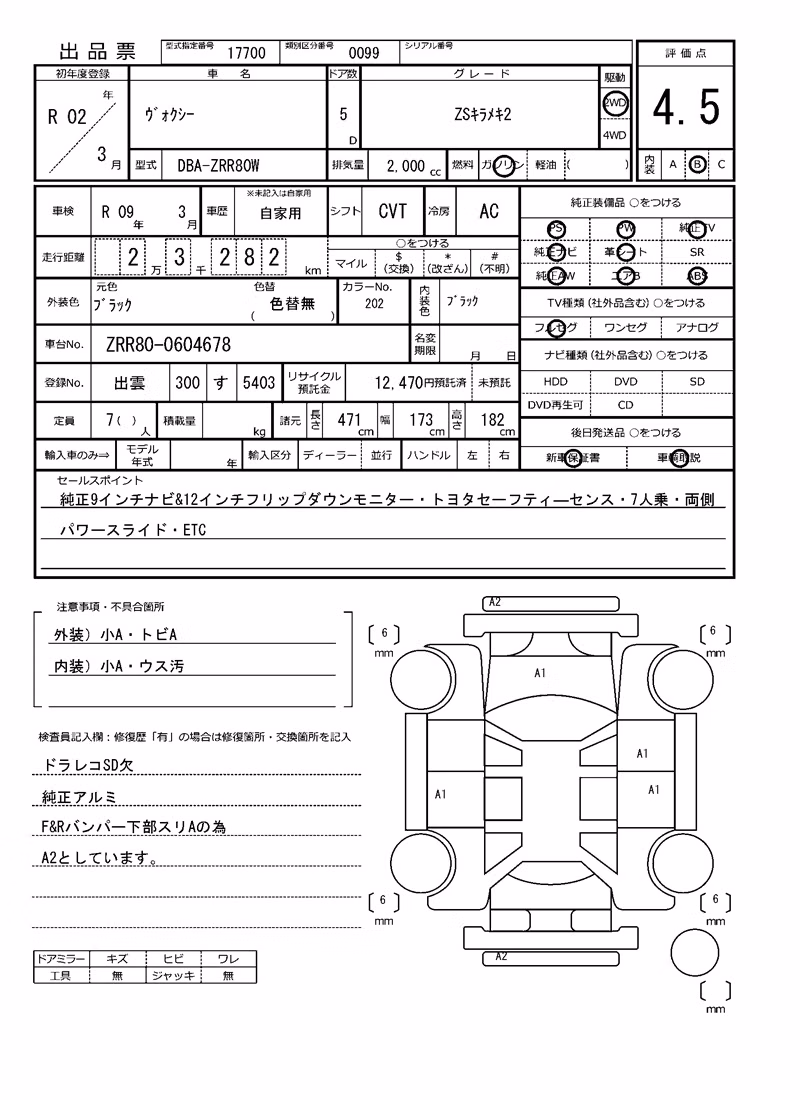 出品票 型式指定番号 17700 類別区分番号 0099 シリアル番号
初年度登録 車名 ドア数 グレード 駆動 評価点
R 02 年 3 月 ヴォクシー 5 D ZSキラメキ2 2WD 4WD 4.5
型式 DBA-ZRR80W 排気量 2,000 cc 燃料 ガソリン 軽油 ( ) 内装 A B C
車検 R 09 年 3 月 車歴 ※未記入は自家用 自家用 シフト CVT 冷房 AC 純正装備品 ○をつける
PS PW 純正TV
走行距離 2 万 3 千 2 8 2 km ○をつける マイル $(交換) *(改ざん) #(不明)
純正ナビ 革シート SR
純正AW エアB ABS
外装色 元色 ブラック 色替 ( 色替無 ) カラーNo. 202 内装色 ブラック
TV種類(社外品含む)○をつける
フルセグ ワンセグ アナログ
車台No. ZRR80-0604678 名変期限 月 日
ナビ種類(社外品含む)○をつける
HDD DVD SD
DVD再生可 CD
登録No. 出雲 300 す 5403 リサイクル預託金 12,470円預託済 未預託
定員 7( ) 人 積載量 kg 諸元 長さ 471 cm 幅 173 cm 高さ 182 cm
後日発送品 ○をつける
新車保証書 車輌取説
輸入車のみ⇒ モデル年式 年 輸入区分 ディーラー 並行 ハンドル 左 右
セールスポイント
純正9インチナビ&12インチフリップダウンモニター・トヨタセーフティ―センス・7人乗・両側
パワースライド・ETC
注意事項・不具合箇所
外装) 小A・トビA
内装) 小A・ウス汚
検査員記入欄:修復歴「有」の場合は修復箇所・交換箇所を記入
ドラレコSD欠
純正アルミ
F&Rバンパー下部スリAの為
A2としています。
ドアミラー キズ ヒビ ワレ
工具 無 ジャッキ 無
A2
6 mm
6 mm
A1
A1
A1
A1
6 mm
6 mm
A2
mm